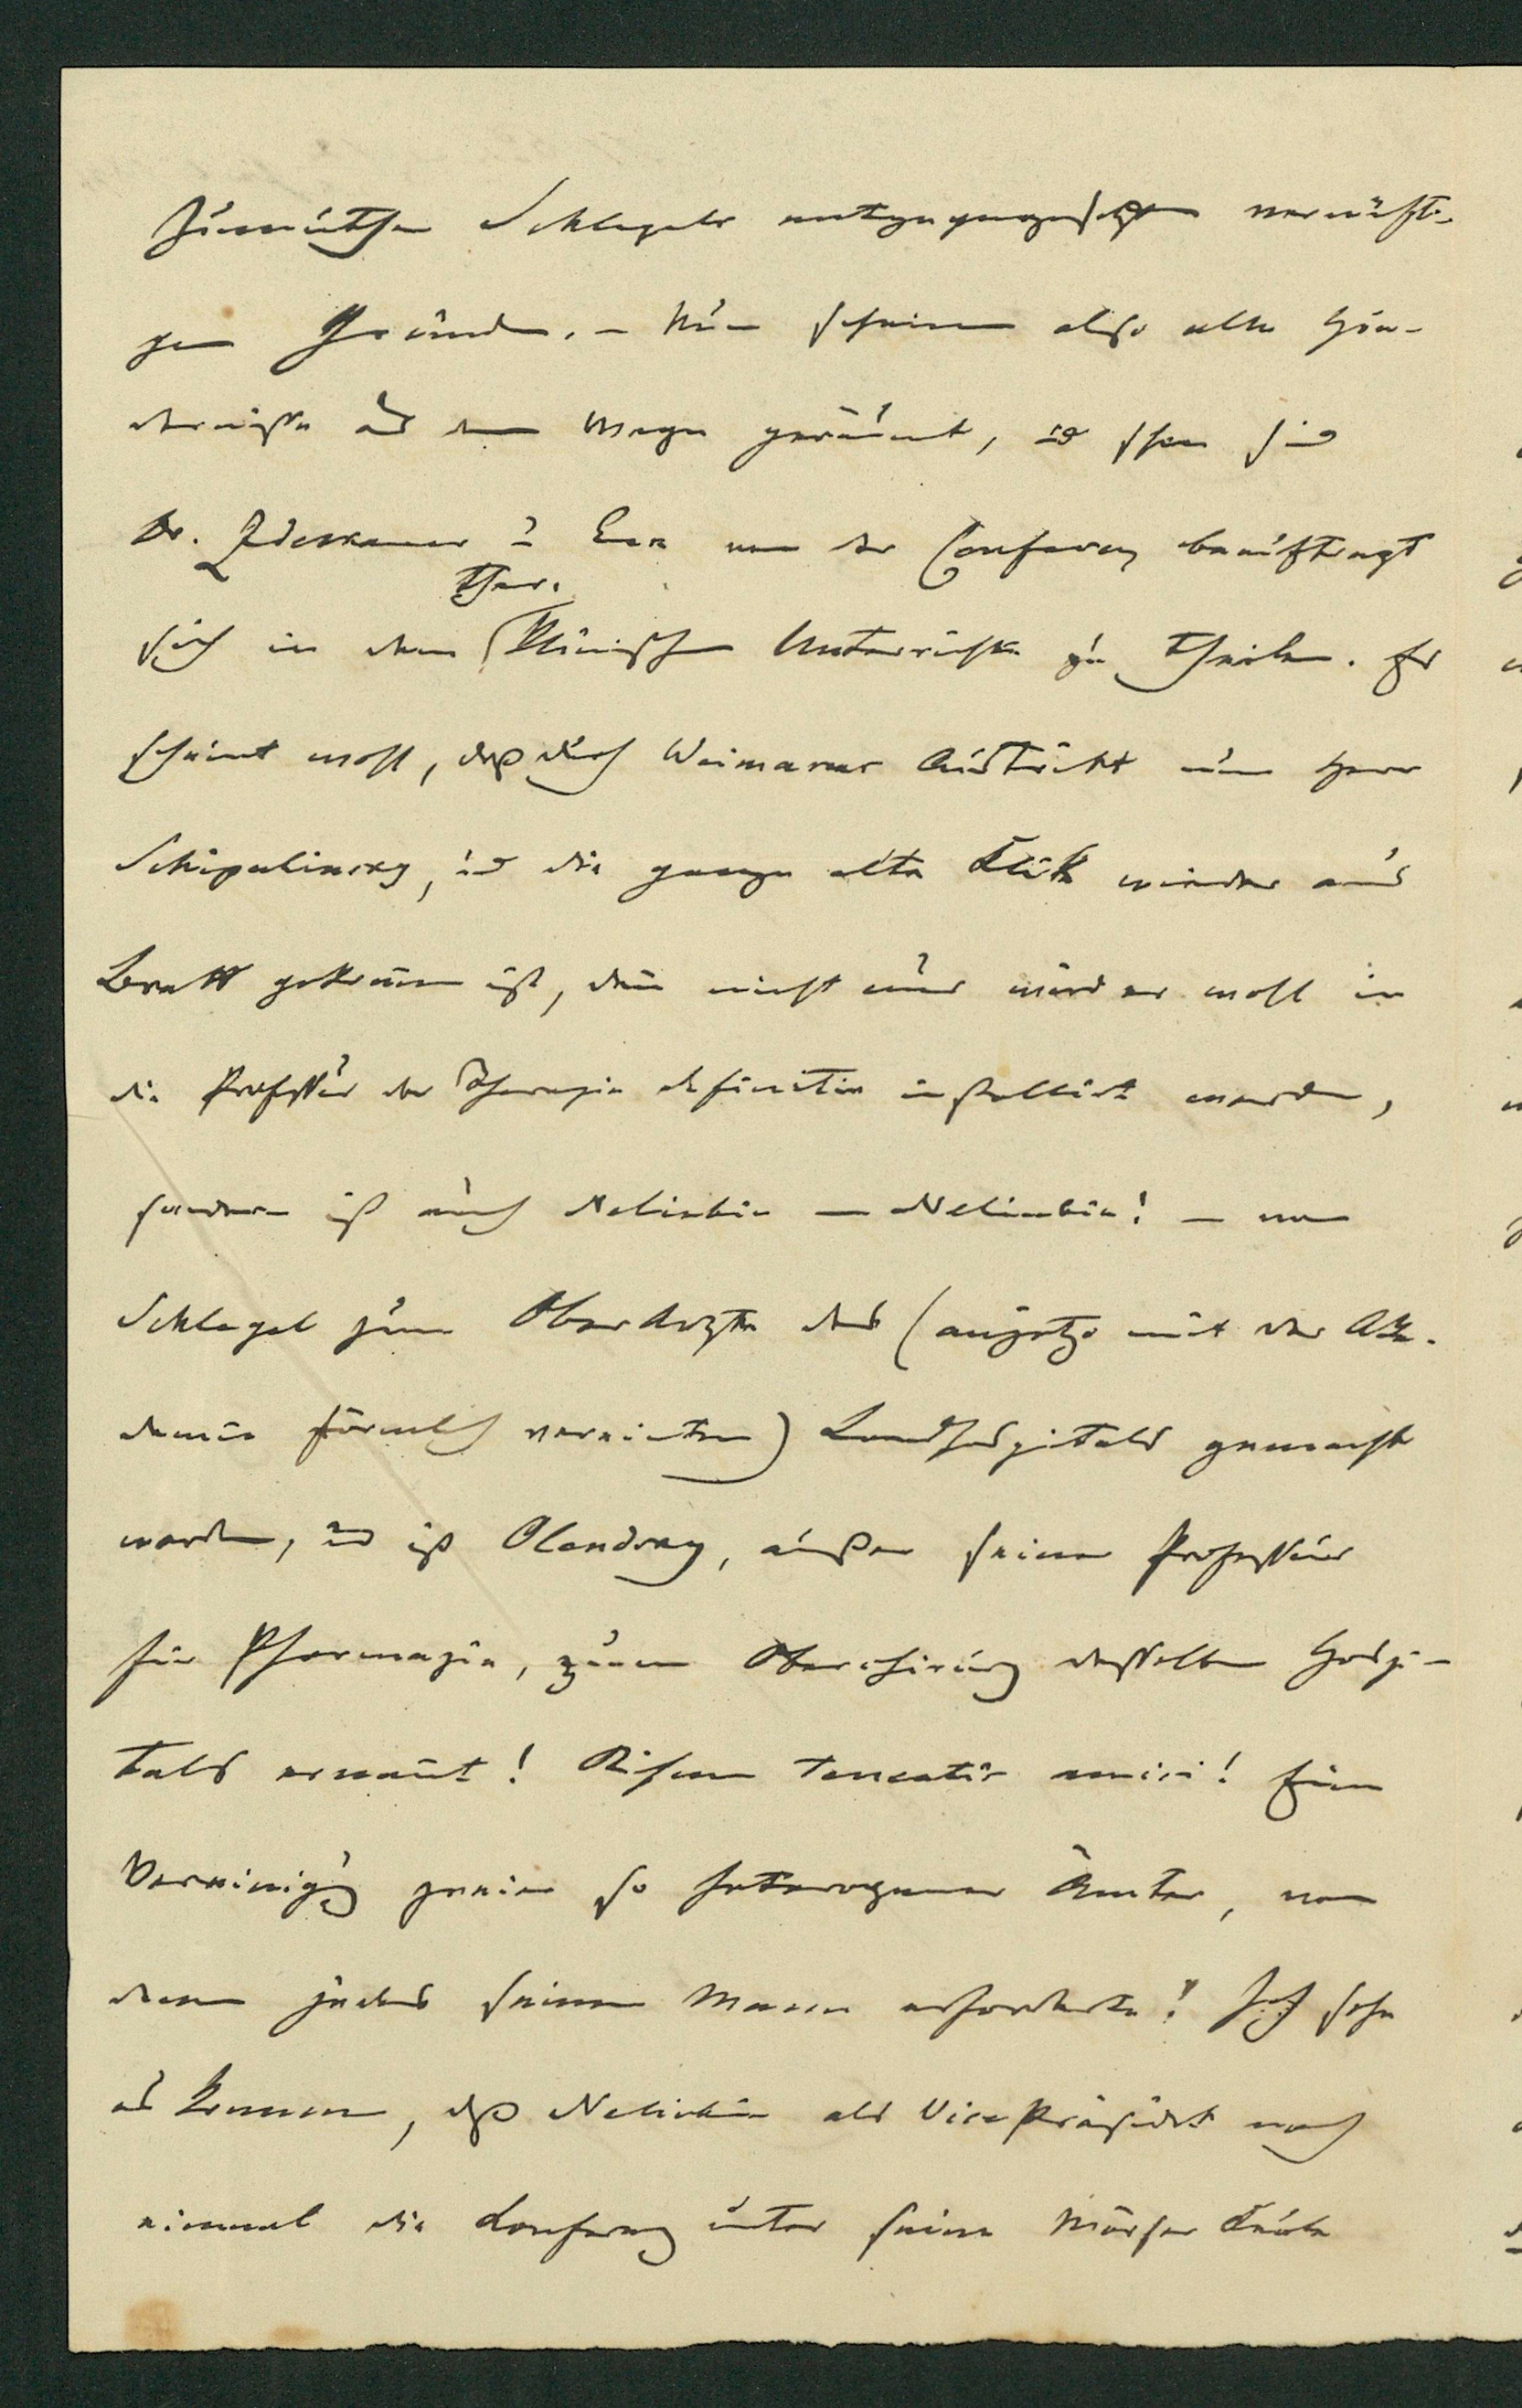 Zumuthen Schlegels entgegengesetzten vernünfti-
gen Gründe. – Nun scheinen also alle Hin-
dernisse aus dem Wege geräumt, und schon sind
Dr. Zdekauer u Eck von der Conferenz beauftragt
sich in dem ther. Klinischen Unterrichte zu theilen. Es
scheint wohl, daß durch Weimarns Austritt nun Herr
Schipulinsky, und die ganze alte Klik wieder aus
Brett gekommen ist, denn nicht nur wird er wohl in
die Professur der Therapie definitiv installirt werden,
sondern ist auch Neliubin – Neliubin! – von
Schlegel zum Oberarzte des (anjetzo mit der Aka-
demie förmlich vereinten) Landhospitals gemacht
worden, und ist Olendsky, außer seiner Professur
für Pharmazie, zum Oberchirurg desselben Hospi-
tals ernannt! Risum teneatis amici! Eine
Vereinigung zweier so heterogener Ämter, von
denen jedes seinen Mann erforderte! Ich sehe
es kommen, daß Neliubin als Vice Präsident noch
einmal die Conferenz unter seine Mörser Keule